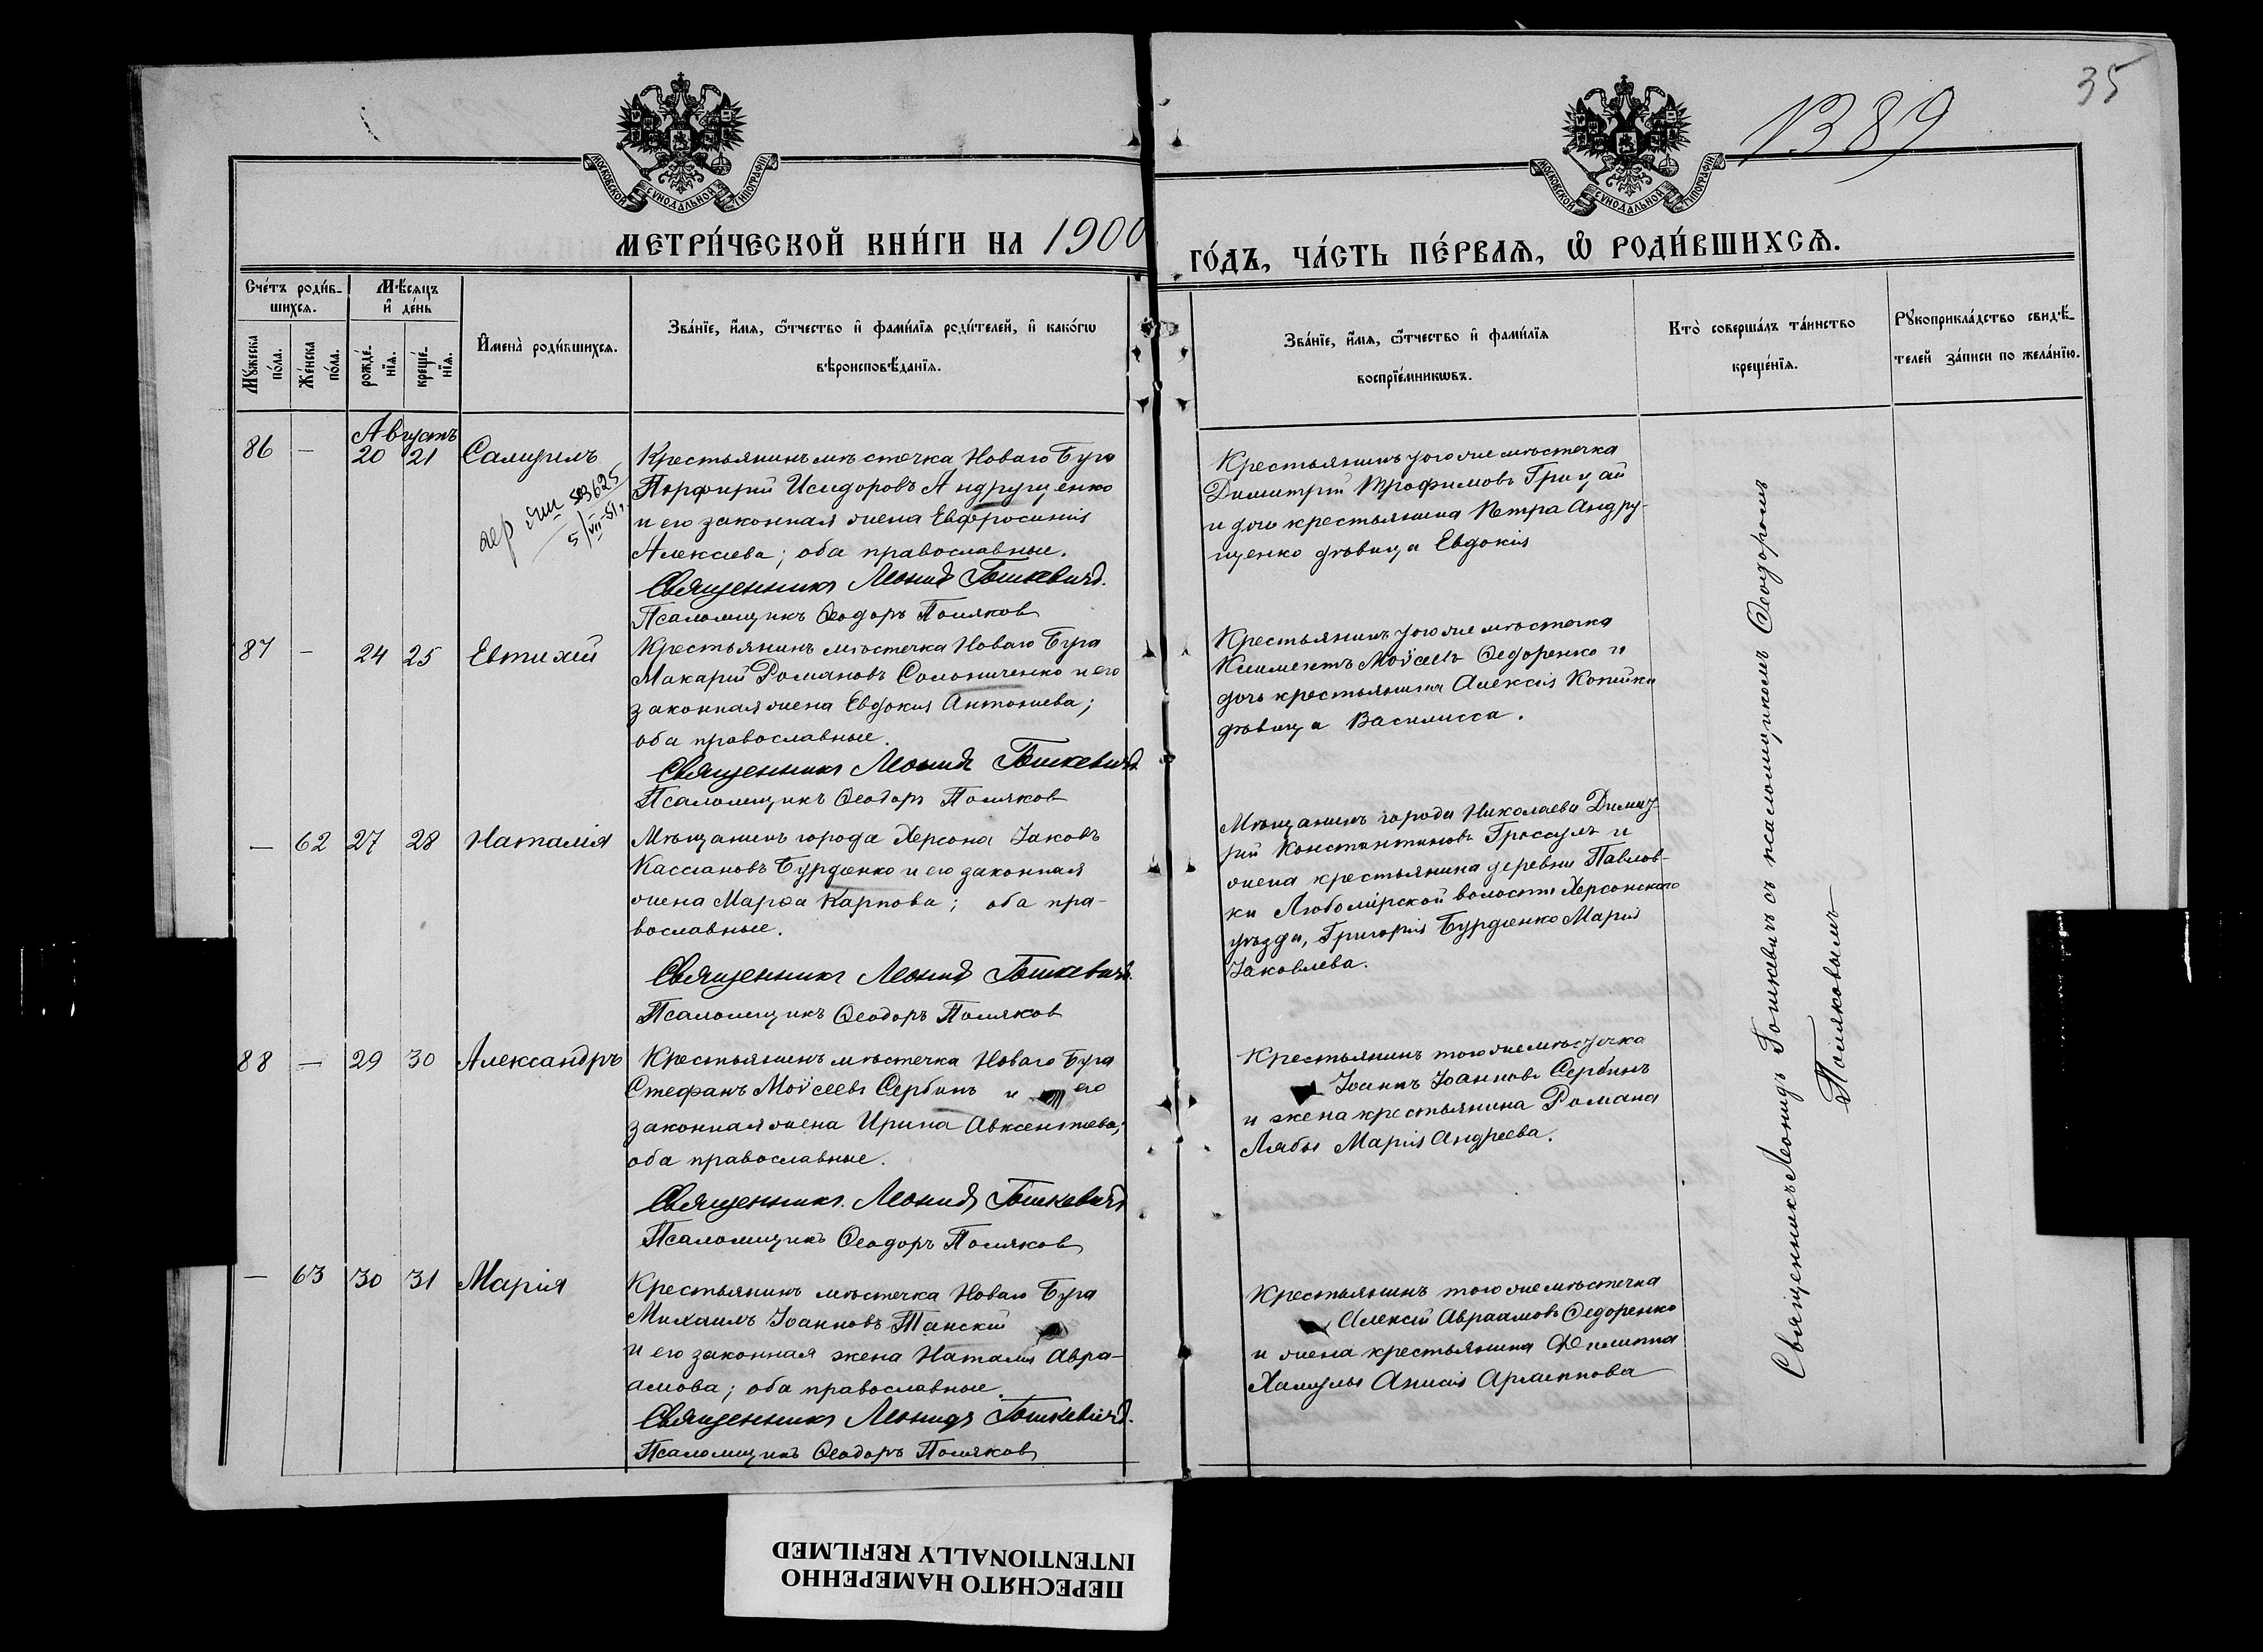 35
1389
МОСКОВСКОЙ СУНОДАЛЬНОЙ ТИПОГРАФІИ
МОСКОВСКОЙ СУНОДАЛЬНОЙ ТИПОГРАФІИ
МЕТРИ́ЧЕСКОЙ КНИ́ГИ НА 1900
ГО́ДЪ, ЧА́СТЬ ПЕ́РВАЯ, Ѡ҆ РОДИ́ВШИХСЯ.
Сче́тъ роди́в-
шихся.
Мꙋ́жеска
по́ла.
Же́нска
по́ла.
Мѣ́сяцъ
и҆ де́нь
рожде́-
нїя.
креще́-
нїя.
И҆мена̀ роди́вшихся.
Зва́нїе, и҆́мя, ѻ҆́тчество и҆ фами́лїя роди́телей, и҆ како́гѡ
вѣроисповѣ́данїя.
Зва́нїе, и҆́мя, ѻ҆́тчество и҆ фами́лїя
воспрїе́мникѡвъ.
Кто̀ соверша́лъ та́инство
креще́нїя.
Рꙋкоприкла́дство свидѣ́-
телей за́писи по жела́нїю.
Августъ
86 — 20 21 Самуилъ
503625
5/VII-51.
Крестьянинъ мѣстечка Новаго Буга
Порфирій Исидоровъ Андрущенко
и его законная жена Евфросинія
Алексѣева; оба православные.
Священникъ Леонид Гошкевичъ.
Псаломщикъ Ѳеодоръ Поляков
Крестьянинъ того же мѣстечка
Димитрій Трофимовъ Грицай
и дочь крестьянина Петра Андру-
щенко дѣвица Евдокія
87 — 24 25 Евтихій
Крестьянинъ мѣстечка Новаго Буга
Макарій Романовъ Солониченко и его
законная жена Евдокія Антонiева;
оба православные.
Священникъ Леонидъ Гошкевичъ.
Псаломщикъ Ѳеодоръ Поляков
Крестьянинъ того же мѣстечка
Климентъ Моѵсеевъ Ѳедоренко и
дочь крестьянина Алексія Копийки
дѣвица Василисса.
— 62 27 28 Наталія
Мѣщанинъ города Херсона Іаковъ
Кассіановъ Бурдѣнко и его законная
жена Марѳа Карпова; оба пра-
вославные.
Священникъ Леонид Гошкевичъ.
Псаломщикъ Ѳеодоръ Поляков
Мѣщанинъ города Николаева Димит-
рій Константиновъ Гроссулъ и
жена крестьянина деревни Павлов-
ки Любомірской волости Херсонскаго
уѣзда, Григорія Бурдѣнко Марія
Іаковлева.
88 — 29 30 Александръ
Крестьянинъ мѣстечка Новаго Буга
Стефанъ Моѵсеевъ Сербинъ и его
законная жена Ирина Авксентіева;
оба православные.
Священникъ Леонид Гошкевичъ
Псаломщикъ Ѳеодоръ Поляков
Крестьянинъ того же мѣстечка
Іоаннъ Іоанновъ Сербинъ
и жена крестьянина Романа
Лябы Марія Андреева.
— 63 30 31 Марія
Крестьянинъ мѣстечка Новаго Буга
Михаилъ Іоанновъ Танскій
и его законная жена Наталія Авра-
амова; оба православные.
Священникъ Леонидъ Гошкевичъ.
Псаломщикъ Ѳеодоръ Поляков
Крестьянинъ того же мѣстечка
Алексій Авраамовъ Ѳедоренко
и жена крестьянина Филиппа
Хамулы Анисія
Священникъ Леонидъ Гошкевичъ съ псаломщикомъ Ѳеодоромъ
Поляковымъ
ПЕРЕСНЯТО НАМЕРЕННО
INTENTIONALLY REFILMED